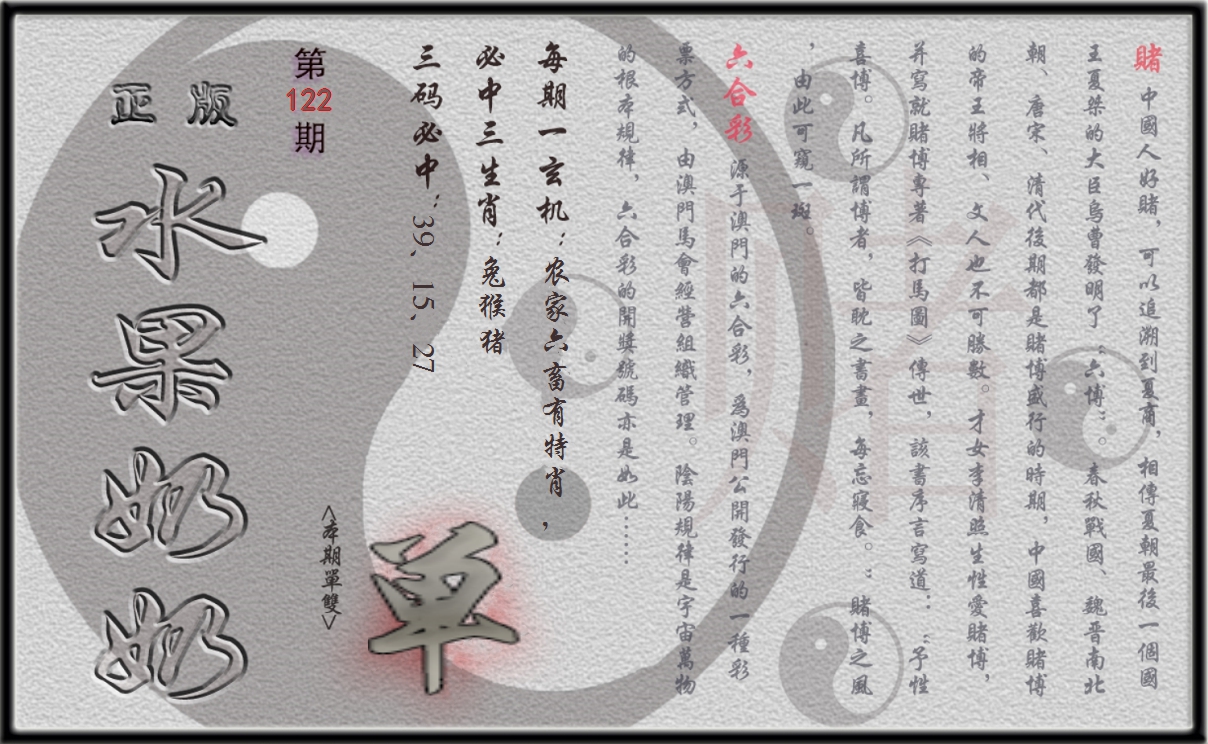 賭 中國人好賭，可以追溯到夏商，相傳夏朝最後一個國
王夏桀的大臣烏曹發明了“六博”。春秋戰國、魏晉南北
朝、唐宋、清代後期都是賭博盛行的時期，中國喜歡賭博
的帝王將相、文人也不可勝數。才女李清照生性愛賭博，
并寫就賭博專著《打馬圖》傳世，該書序言寫道：“予性
喜博。凡所謂博者，皆耽之書畫，每忘寢食。：賭博之風
，由此可窺一斑。
六合彩 源于澳門的六合彩，為澳門公開發行的一種彩
票方式，由澳門馬會經營組織管理。陰陽規律是宇宙萬物
的根本規律，六合彩的開獎號碼亦是如此……
每期一玄机：农家六畜有特肖，
必中三生肖：兔猴猪
三码必中：39、15、27
第122期
<本期單雙>
单
正版
水果奶奶
赌